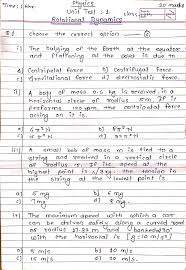 Time: 1 Hr.
Physics
20 marks
Unit Test : 1
Rotational Dynamics
Q.1 Choose the correct option
i) The bulging of the Earth at the equator
and flattening at the poles is due to
a) Centripetal force b) centrifugal force
c) Gravitational force d) electrostatic force.
ii) A body of mass 0.5 kg is revolved in a
horizontal circle of radius 5m. If is
performing 120 rpm, the centripetal force
acting on it is
iii) A small bob of mass m is tied to a
string and revolved in a vertical circle
of radius r. If its speed at the
highest point is the tension in
the string at the lowest point is
a) 5 mg b) 6 mg
c) 7 mg d) 8 mg.
iv) The maximum speed with which a car
can be driven safely along a curved road
of radius and banked
with the horizontal is [g = 10 m/s²]
a) 5 m/s b) 10 m/s
c) 15 m/s d) 20 m/s.